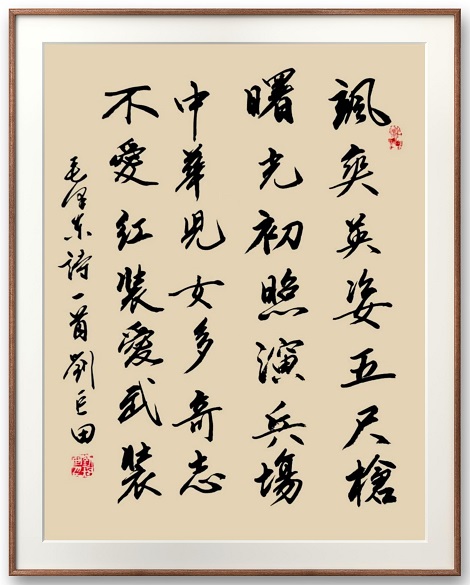 颯爽英姿五尺槍
曙光初照演兵場
中華児女多奇志
不愛紅裝愛武裝
毛泽东詩一首劉巨田